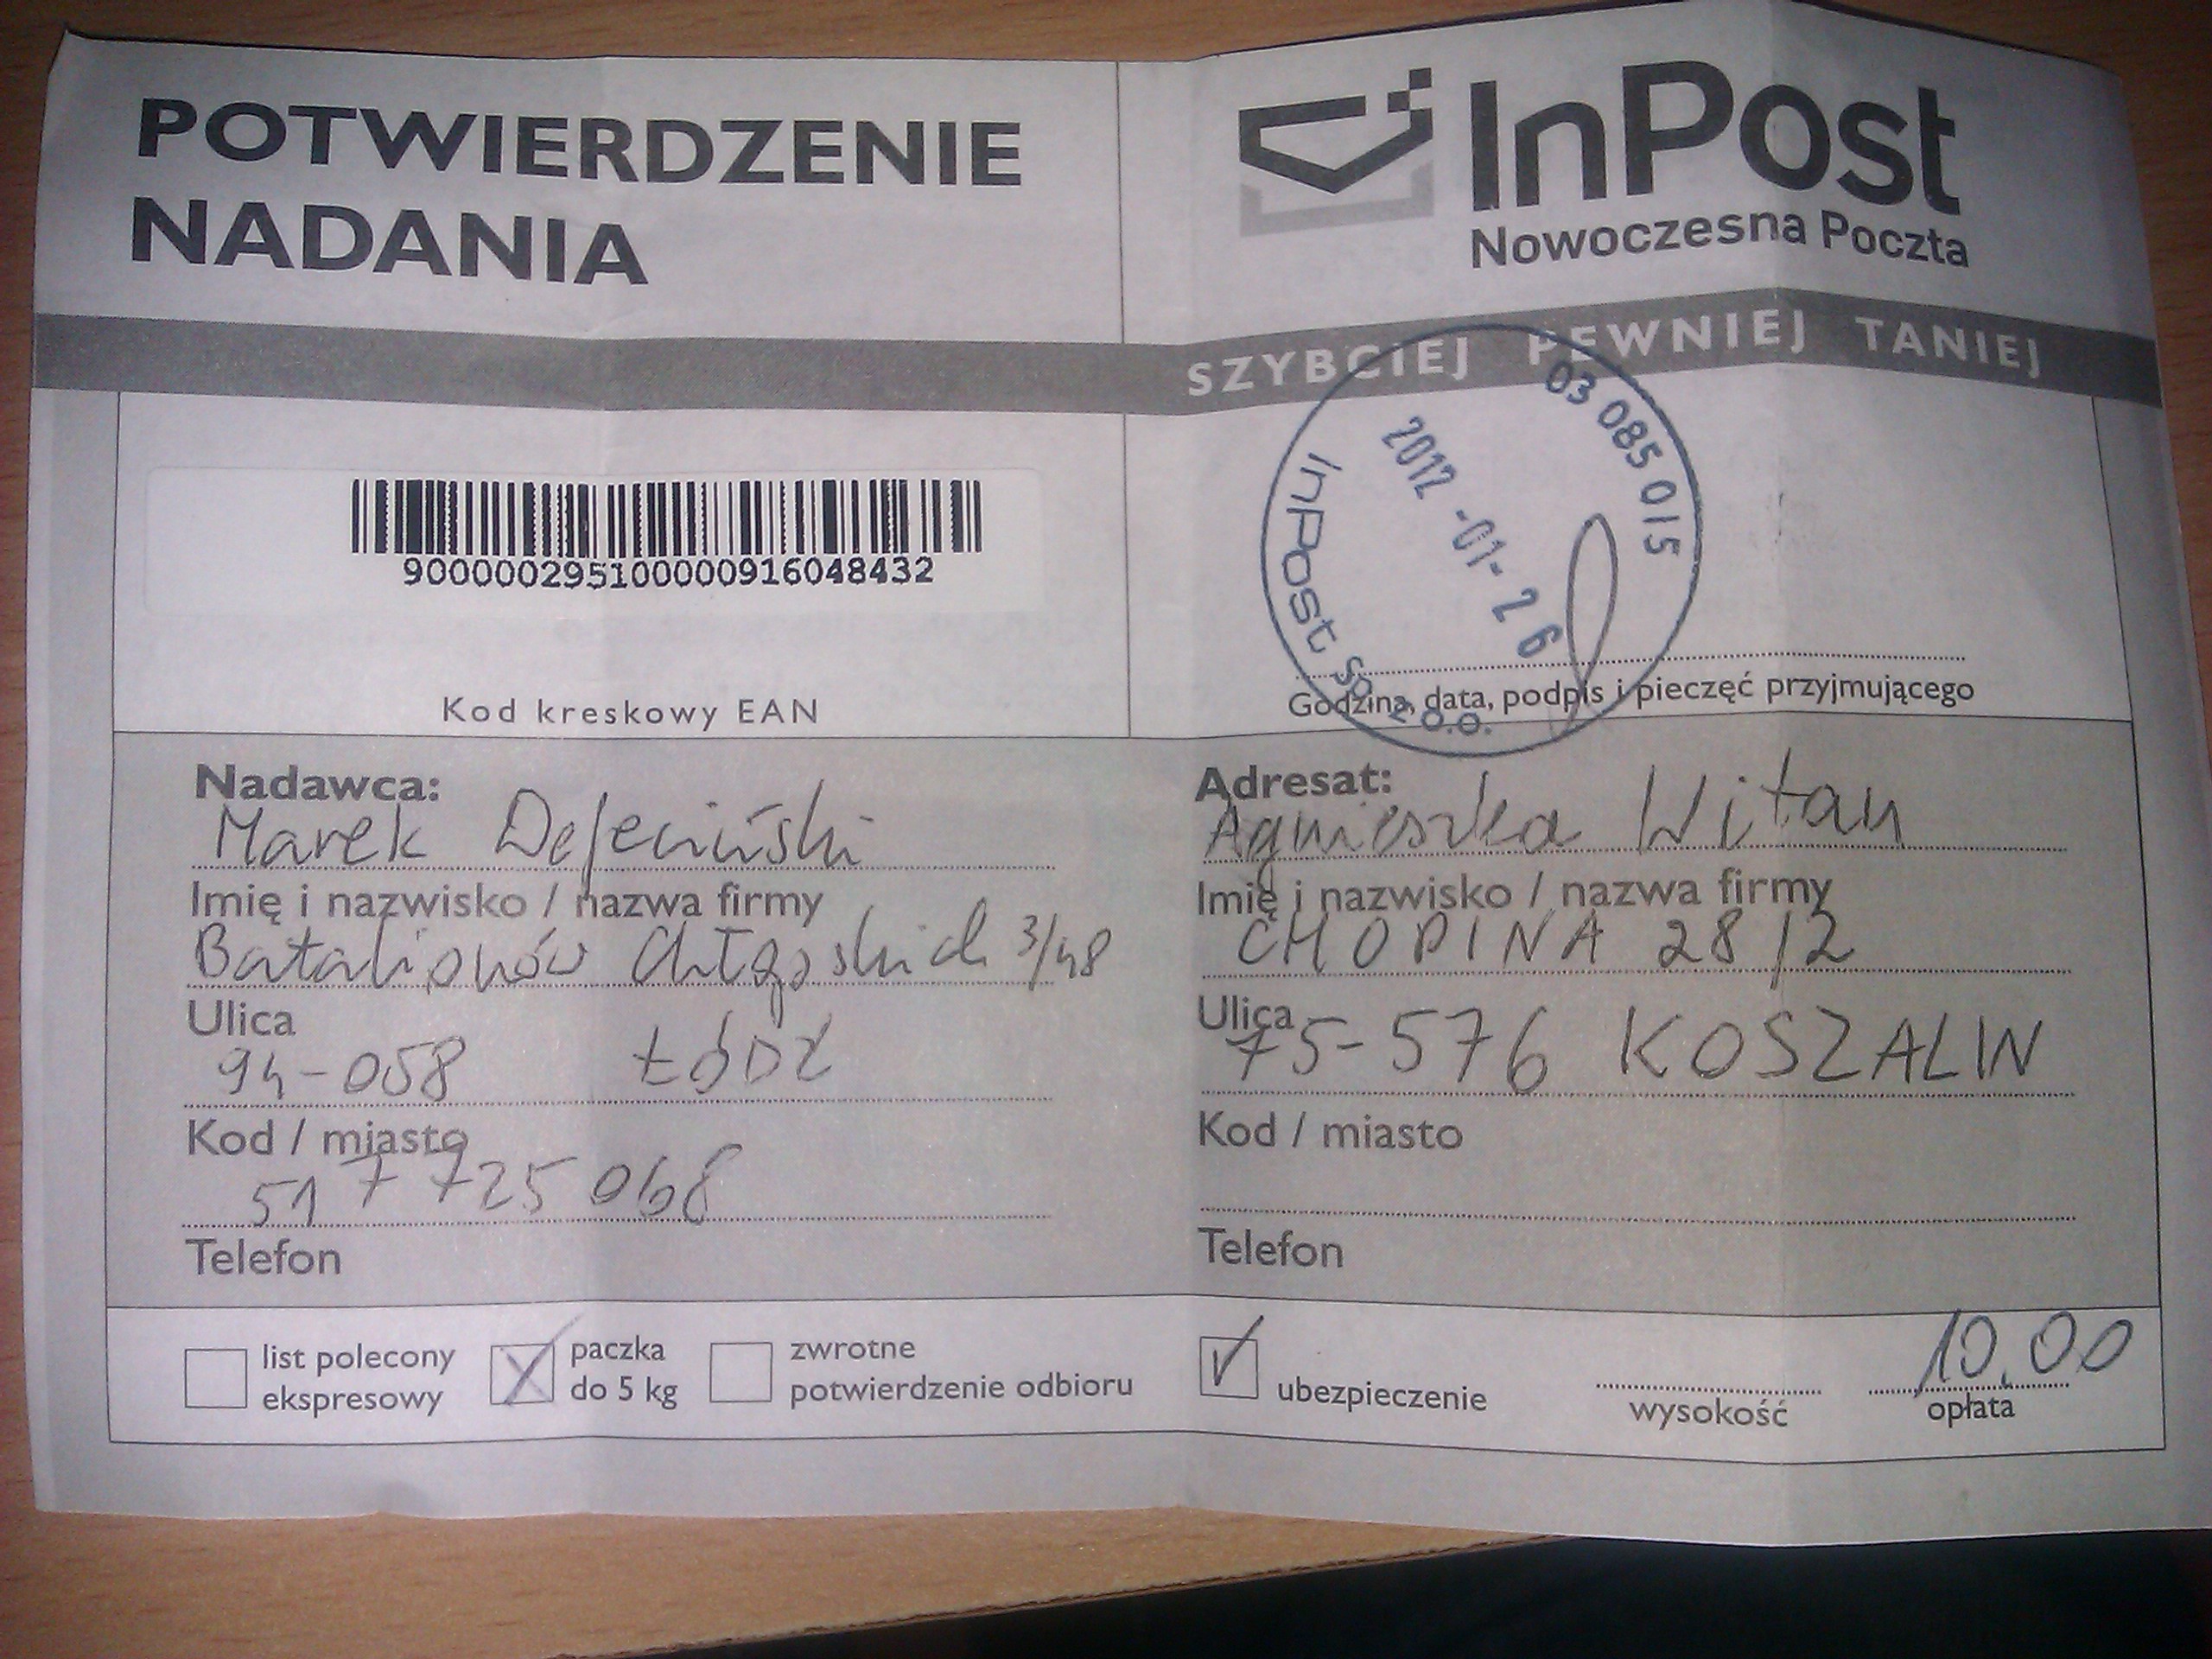 POTWIERDZENIE
NADANIA
InPost
Nowoczesna Poczta
SZYBCIEJ PEWNIEJ TANIEJ
03 085 015
2012 -01- 26
InPost Sp. z o.o.
9000000295100000916048432
Kod kreskowy EAN
Godzina, data, podpis i pieczęć przyjmującego
Nadawca:
Marek
Imię i nazwisko / nazwa firmy
Batalionów Chłopskich 3/48
Ulica
94-058 ŁÓDŹ
Kod / miasto
517 725 068
Telefon
Adresat:
Agnieszka Witan
Imię i nazwisko / nazwa firmy
CHOPINA 28/2
Ulica
75-576 KOSZALIN
Kod / miasto
Telefon
list polecony
ekspresowy
paczka
do 5 kg
zwrotne
potwierdzenie odbioru
ubezpieczenie
wysokość
10.00
opłata